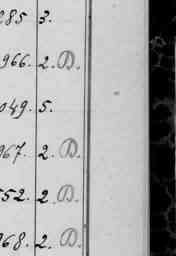 285 3.
966. 2. D.
049. 5.
967. 2. D.
552. 2. D.
968. 2. D.